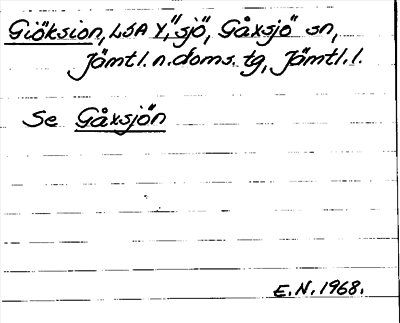 Giöksion, LSA Y, "sjö", Gåxsjö sn,
Jämtl. n. doms. tg, Jämtl. l.
Se Gåxsjön
E.N. 1968.